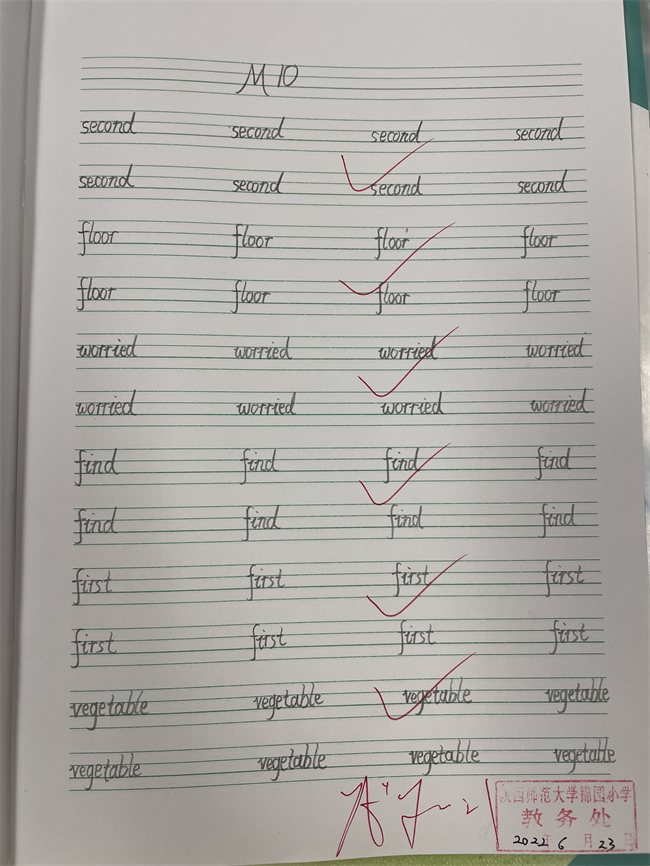 M10
second second second second
second second second second
floor floor floor floor
floor floor floor floor
worried worried worried worried
worried worried worried worried
find find find find
find find find find
first first first first
first first first first
vegetable vegetable vegetable vegetable
vegetable vegetable vegetable vegetable
陕西师范大学锦园小学
教务处
2022年6月23日